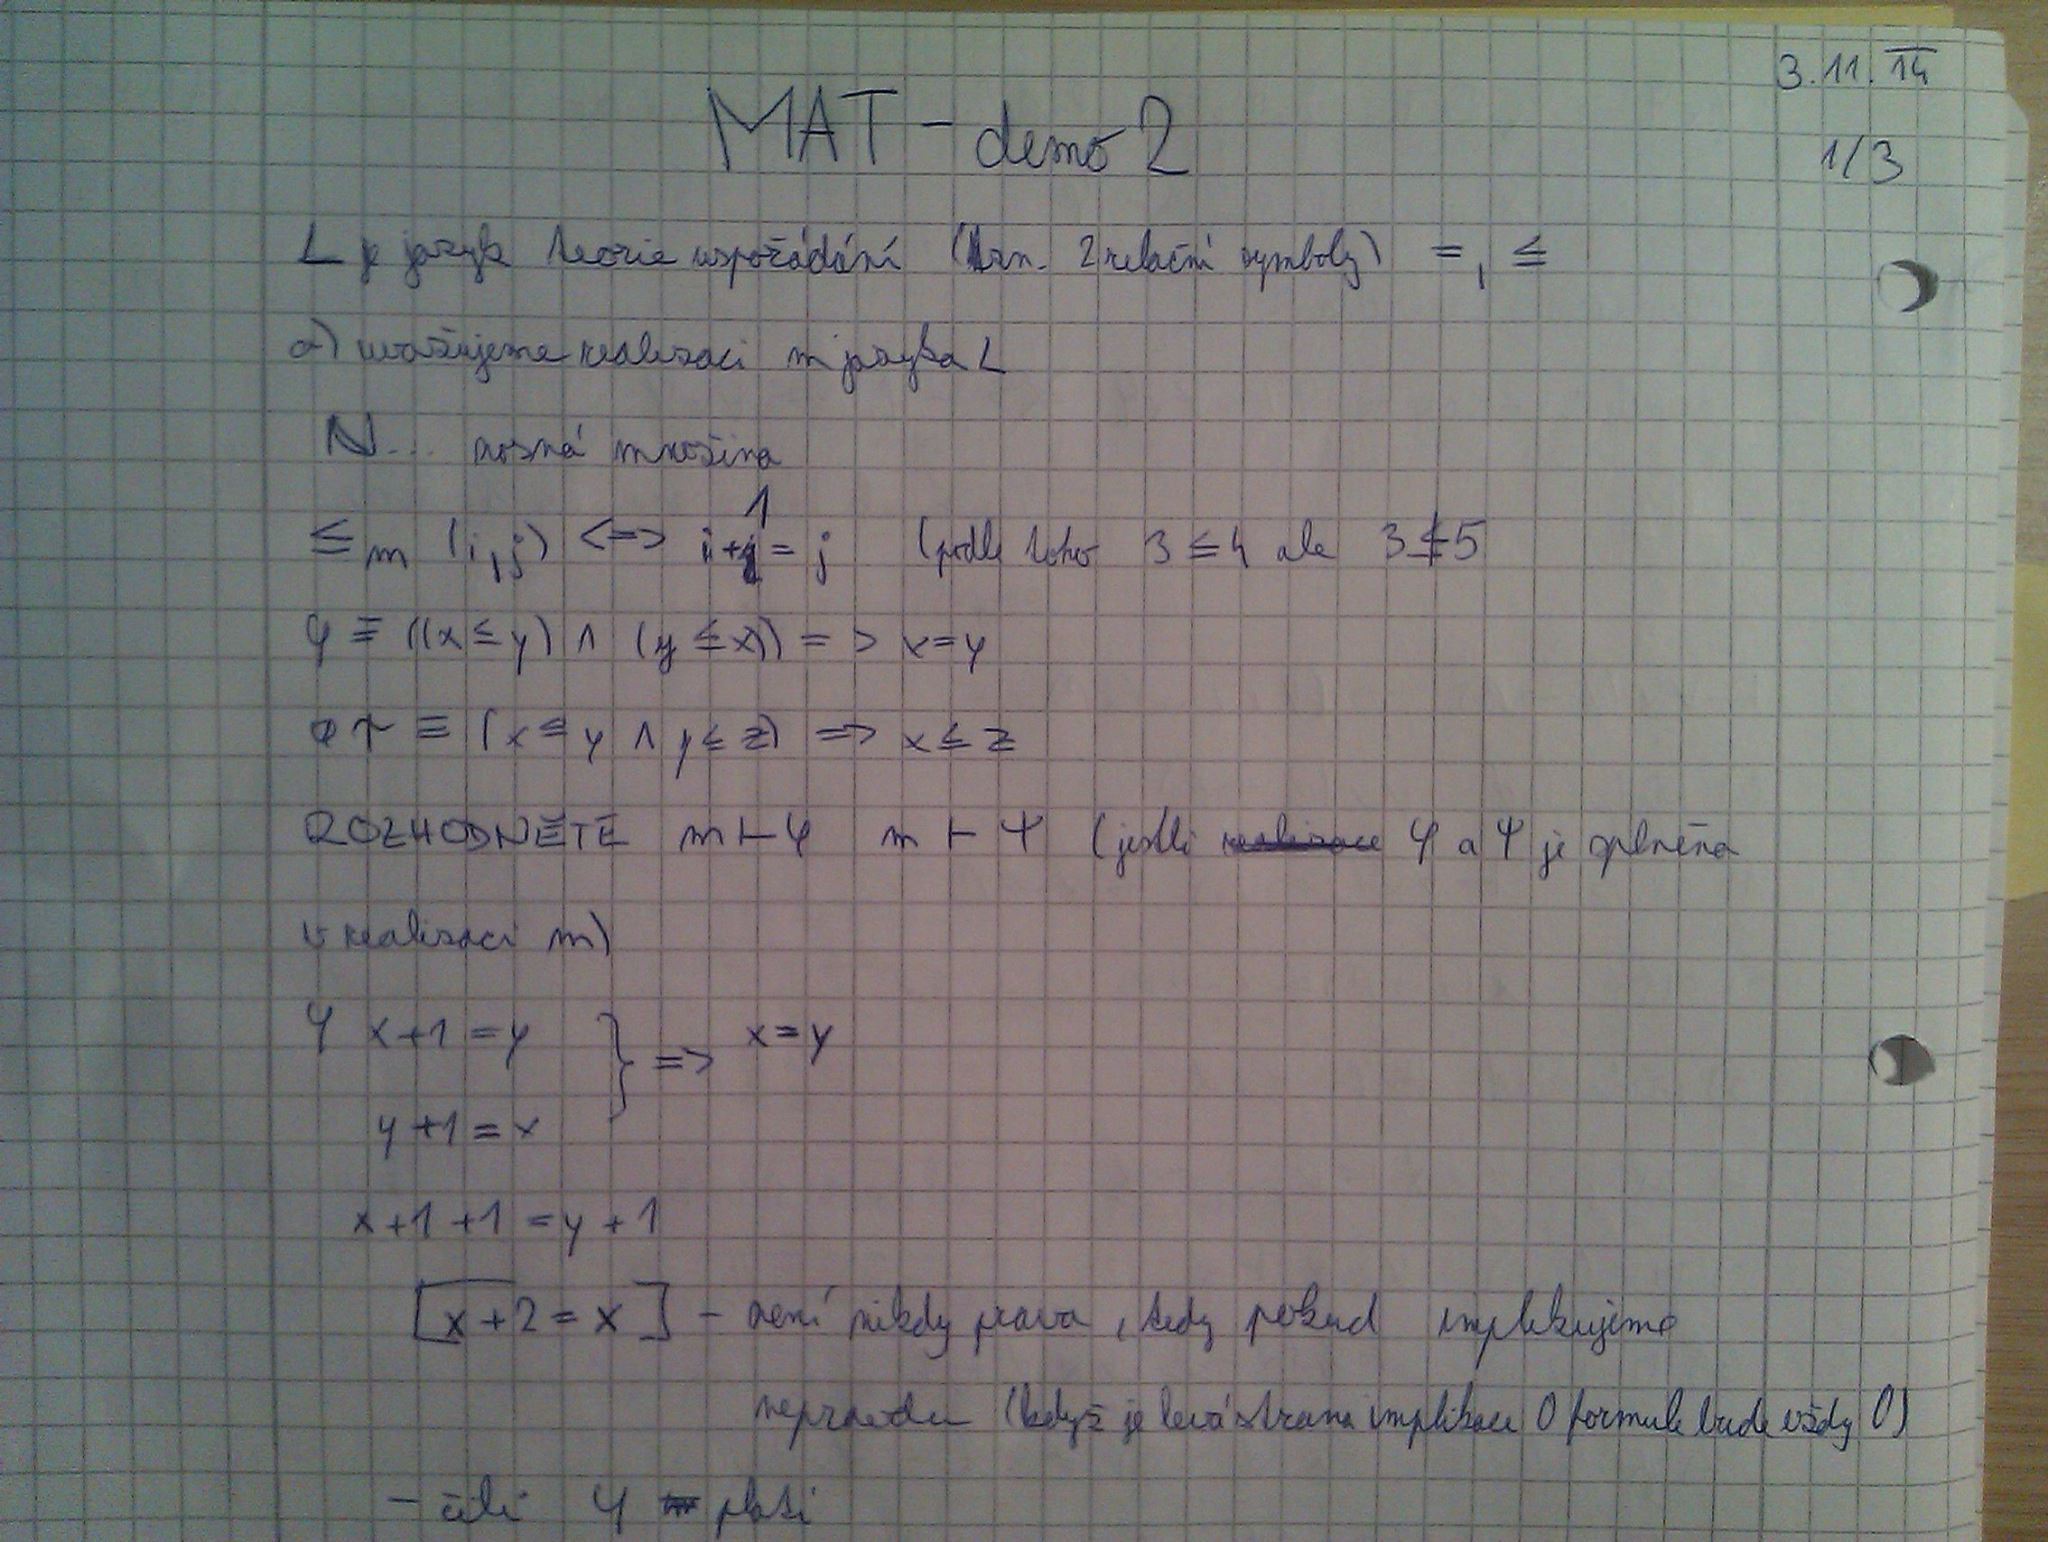 3.11.14
MAT - demo 2
1/3
L je jazyk teorie uspořádání (tzn. 2 relační symboly) =, ≤
a) uvažujeme realizaci m jazyka L
N... nosná množina
≤m (i,j) <=> i+1 = j (podle toho 3 ≤ 4 ale 3 ≰ 5
φ ≡ ((x ≤ y) ∧ (y ≤ x)) => x=y
ψ ≡ (x ≤ y ∧ y ≤ z) => x ≤ z
ROZHODNĚTE m ⊢ φ m ⊢ ψ (jestli φ a ψ je splněna
v realizaci m)
φ x+1 = y } => x = y
y+1 = x
x+1+1 = y+1
[x+2 = x] - není nikdy prava, tedy pokud implikujeme
nepravdu (když je levá strana implikace 0 formule bude vždy 0)
- čili φ platí